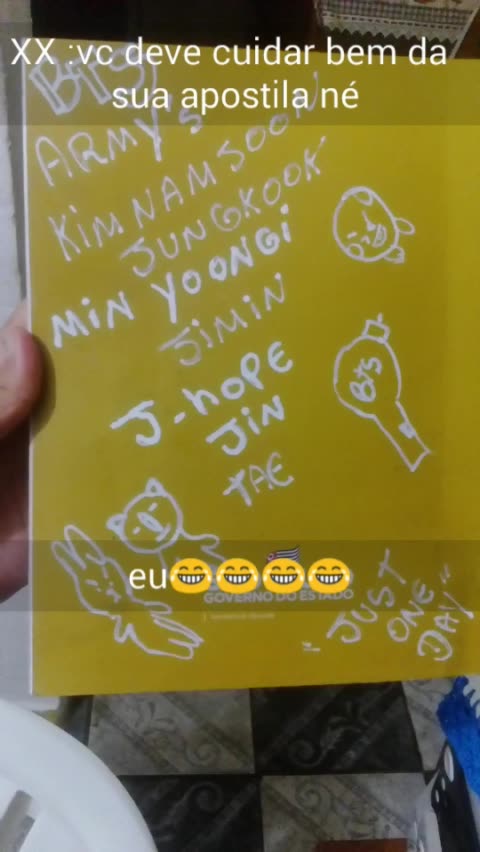 XX :vc deve cuidar bem da
sua apostila né
BTS
ARMY's
KiM NAMSOON
JUNGKOOK
MiN YOONGi
JiMiN
J-HOPE
JiN
TAE
BTS
eu😂😂😂😂
GOVERNO DO ESTADO
"JUST
ONE
DAY"